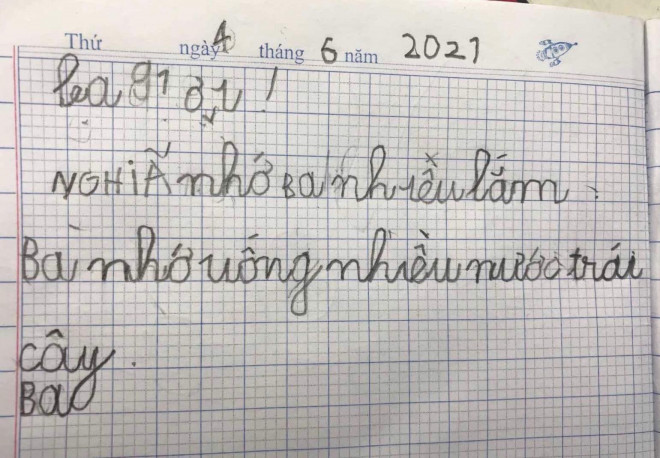 Thứ ngày 4 tháng 6 năm 2021
Ba ơi !
NGHIÃ nhớ Ba nhiều lắm .
Ba nhớ uống nhiều nước trái
cây .
Ba